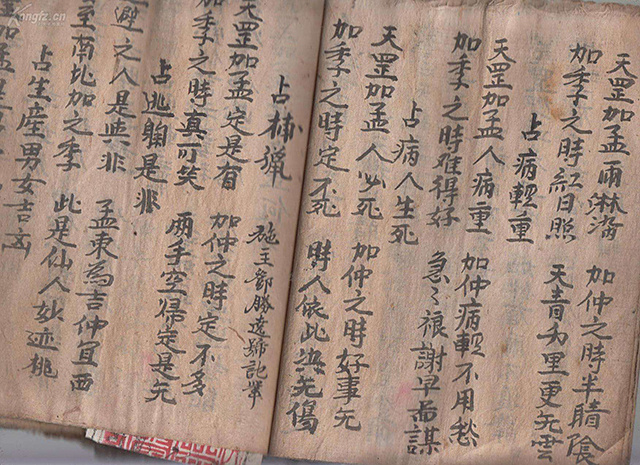 天罡加孟雨淋滴 加仲之時半晴陰
加季之時紅日照 天青万里更无雲
占病輕重
天罡加孟人病重 加仲病輕不用愁
加季之時难得好 急々禳謝早 謀
占病人生死
天罡加孟人必死 加仲之時好事无
加季之時定不死 時人依此 无傷
占捕猟
施主鄧勝 記筆
天罡加孟定是有 加仲之時定不多
加季之時真可笑 两手空歸定是无
占逃躲是非
避之人是與非 孟東為吉仲宜西
南北加之季 此是仙人妙迹桃
占生産男女吉凶
加孟
Kongfz.cn